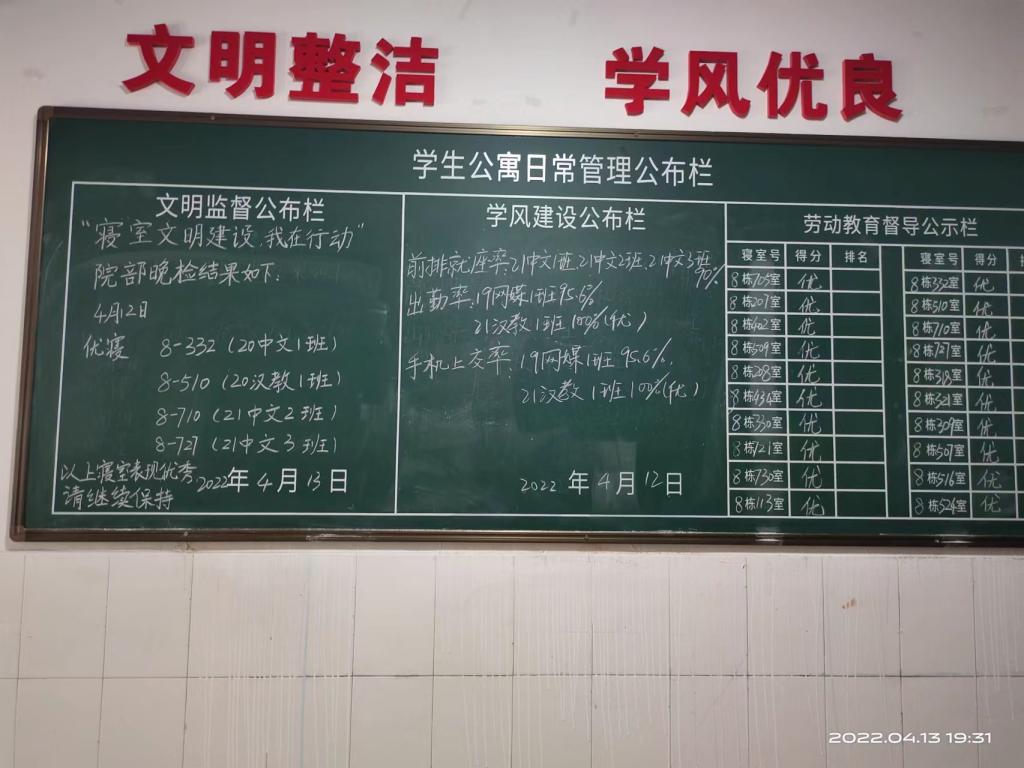 文明整洁 学风优良
学生公寓日常管理公布栏
文明监督公布栏
"寝室文明建设,我在行动"
院部晚检结果如下:
4月12日
优寝 8-332(20中文1班)
8-510(20汉教1班)
8-710(21中文2班)
8-727(21中文3班)
以上寝室表现优秀
请继续保持
2022年4月13日
学风建设公布栏
前排就座率:21中文1班,21中文2班,21中文3班
90%
出勤率:19网媒1班95.6%
21汉教1班100%(优)
手机上交率:19网媒1班95.6%,
21汉教1班100%(优)
2022年4月12日
劳动教育督导公示栏
寝室号 得分 排名 寝室号 得分
8栋705室 优 8栋332室 优
8栋207室 优 8栋510室 优
8栋402室 优 8栋710室 优
8栋509室 优 8栋727室 优
8栋208室 优 8栋318室 优
8栋434室 优 8栋321室 优
8栋330室 优 8栋309室 优
8栋121室 优 8栋507室 优
8栋730室 优 8栋516室 优
8栋113室 优 8栋524室 优
2022.04.13 19:31